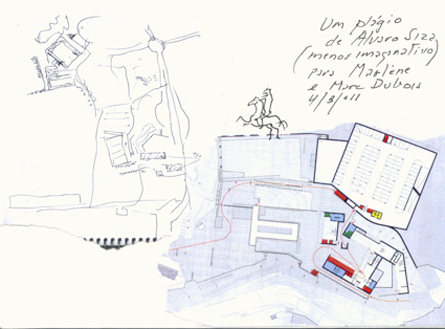 Um plágio
de Alvaro Siza
(menos imaginativo)
para Marlène
e Marc Dubois
4/3/011